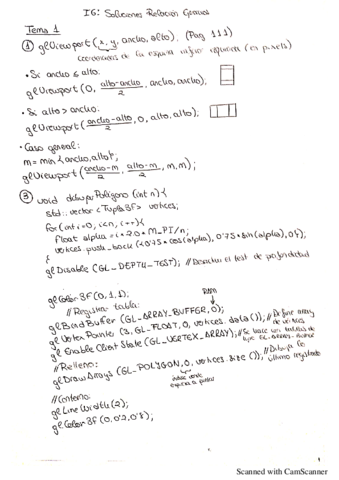 IG: Soluciones Relación General
Tema 1
① glViewport(x, y, ancho, alto). (Pag 111)
coordenadas de la esquina inferior izquierda (en pixels)
· Si ancho ≤ alto:
glViewport(0, alto-ancho/2, ancho, ancho);
· Si alto > ancho:
glViewport(ancho-alto/2, 0, alto, alto);
· Caso general:
m = min{ancho, alto};
glViewport(ancho-m/2, alto-m/2, m, m);
③ void dibujaPoligono(int n){
std::vector<Tuple3f> vertices;
for(int i=0; i<n, i++){
float alpha = i*2.0*M_PI/n;
vertices.push_back(0.75*cos(alpha), 0.75*sin(alpha), 0f);
}
glDisable(GL_DEPTH_TEST); //Desactiva el test de profundidad
glColor3f(0,1,1);
//Registrar tabla:
glBindBuffer(GL_ARRAY_BUFFER, 0);
glVertexPointer(3, GL_FLOAT, 0, vertices.data()); //Define array de vertices
glEnableClientState(GL_VERTEX_ARRAY);
//Relleno:
glDrawArrays(GL_POLYGON, 0, vertices.size()); //Dibuja lo último registrado
índice donde empieza a pintar
//Contorno:
glLineWidth(2);
glColor3f(0,0'2,0'8);
1
Scanned with CamScanner